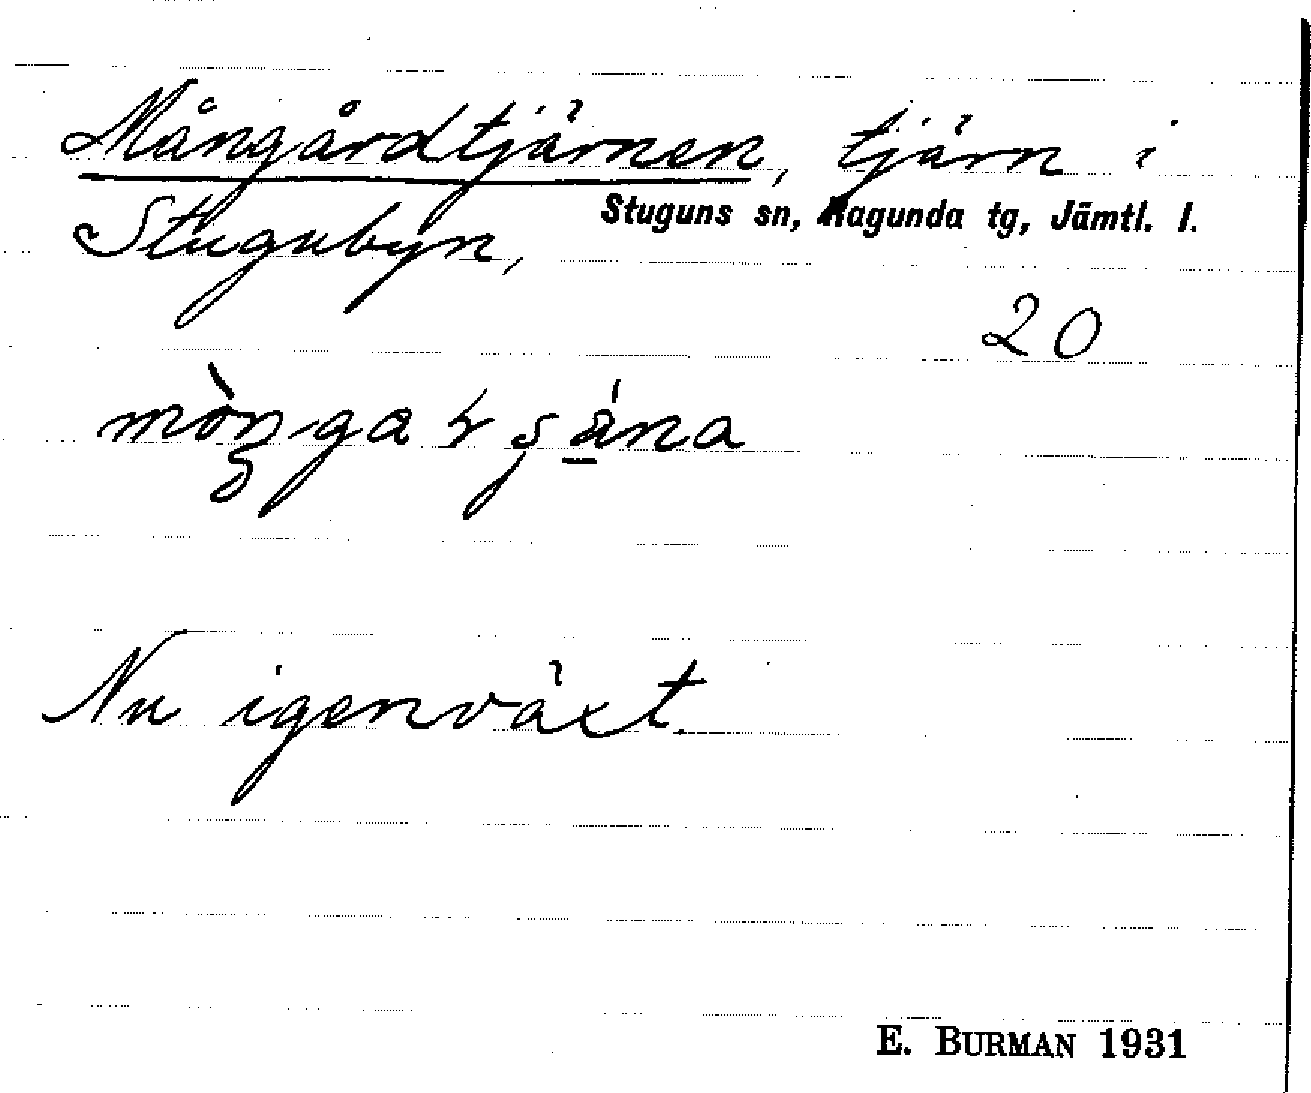 Mångårdtjärnen, tjärn i
Stugubyn, Stuguns sn, Ragunda tg, Jämtl. l.
20
Nu igenväxt.
E. BURMAN 1931